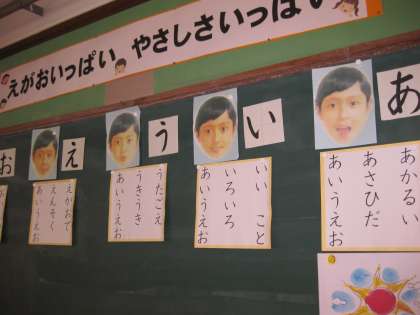 えがおいっぱい やさしさいっぱい
あ
あかるい
あさひだ
あいうえお
い
いい こと
いろいろ
あいうえお
う
うたごえ
うきうき
あいうえお
え
えがおで
えんそく
あいうえお
お